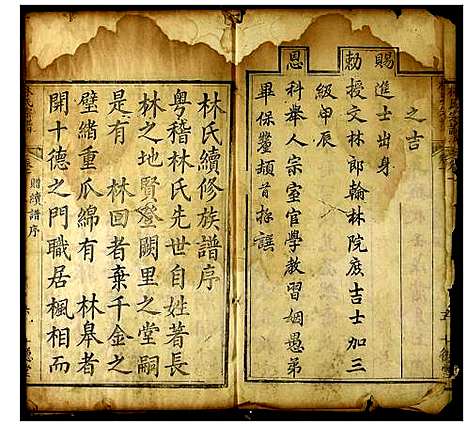 之吉
賜進士出身
勅授文林郎翰林院庶吉士加三
級甲辰
恩科舉人宗室官學教習姻愚弟
畢保釐頓首拜譔
林氏續修族譜序
粵稽林氏先世自姓著長
林之地賢登闕里之堂嗣
是有林回者棄千金之
璧緒重瓜綿有林皋者
開十德之門職居楓相而
贈續譜序